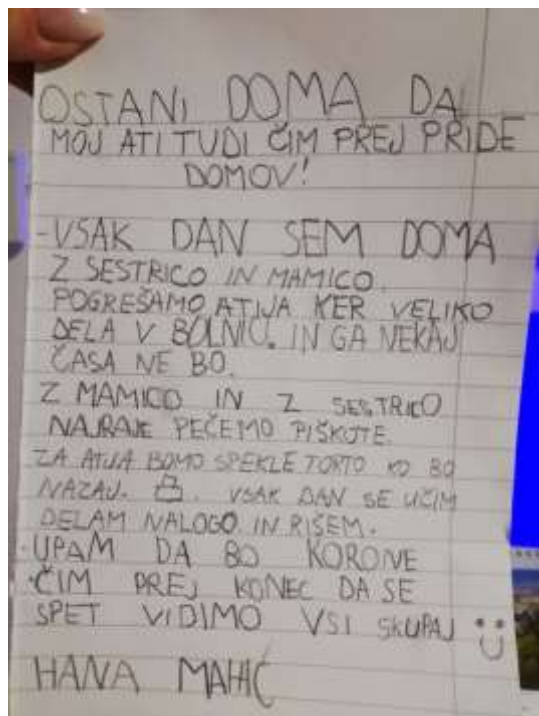 OSTANI DOMA DA
MOJ ATI TUDI ČIM PREJ PRIDE
DOMOV!
-VSAK DAN SEM DOMA
Z SESTRICO IN MAMICO.
POGREŠAMO ATIJA KER VELIKO
DELA V BOLNICI. IN GA NEKAJ
ČASA NE BO.
Z MAMICO IN Z SESTRICO
NAJRAJE PEČEMO PIŠKOTE.
ZA ATIJA BOMO SPEKLE TORTO KO BO
NAZAJ. VSAK DAN SE UČIM
DELAM NALOGO IN RIŠEM.
·UPAM DA BO KORONE
·ČIM PREJ KONEC DA SE
SPET VIDIMO VSI SKUPAJ
HANA MAHIĆ